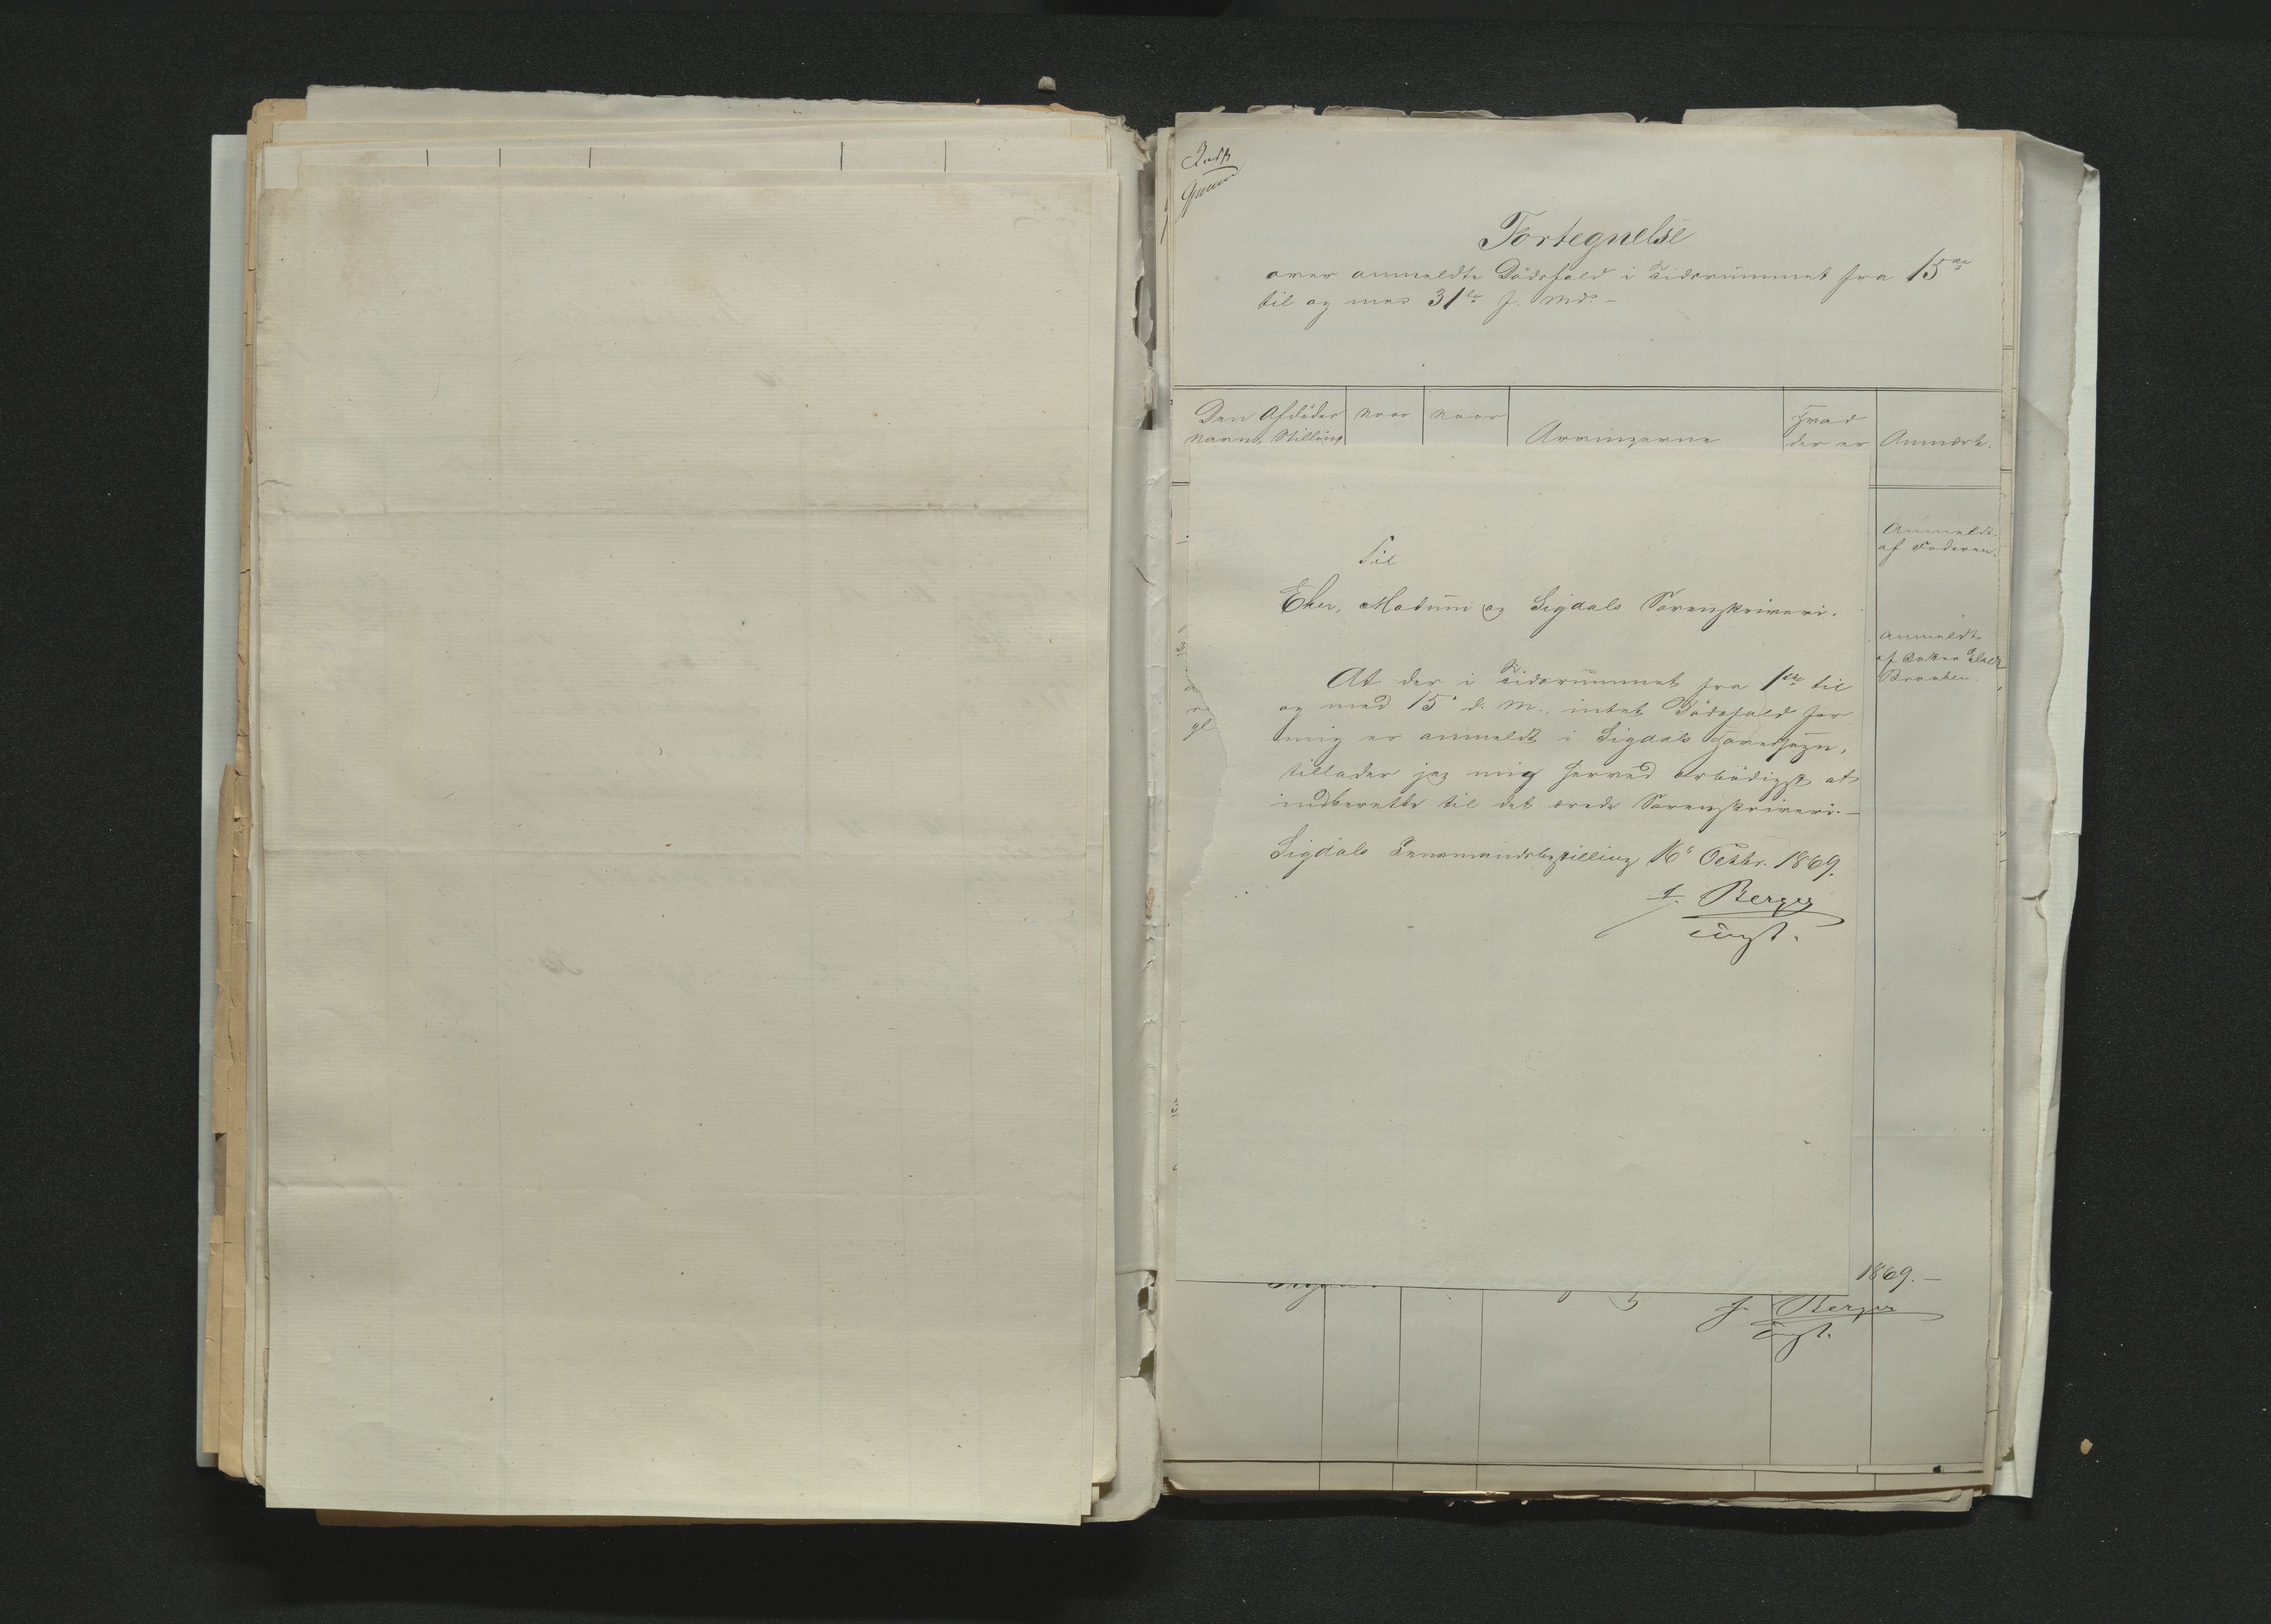 Fortegnelse
over anmeldte Dödsfald i Tidsrummet fra 15de
til og med 31te f. Md. –
Den Afdödes
Navn, Stilling
Naar
Naar
Arvingerne
Hvad
der er
Anmærk.
Anmeldt
af Faderen.
Anmeldt
af
Braaten.
Til
Eker, Modum og Sigdals Sorenskriveri.
At der i Tidsrummet fra 1ste til
og med 15' d. M. intet Dödsfald for
mig er anmeldt i Sigdals Thinglag,
tillader jeg mig herved ærbödigst at
indberette til det ærede Sorenskriveri. –
Sigdals Lensmandsbestilling 16' Octbr. 1869.
Berger
cngst.
1869. –
Berger
cngst.